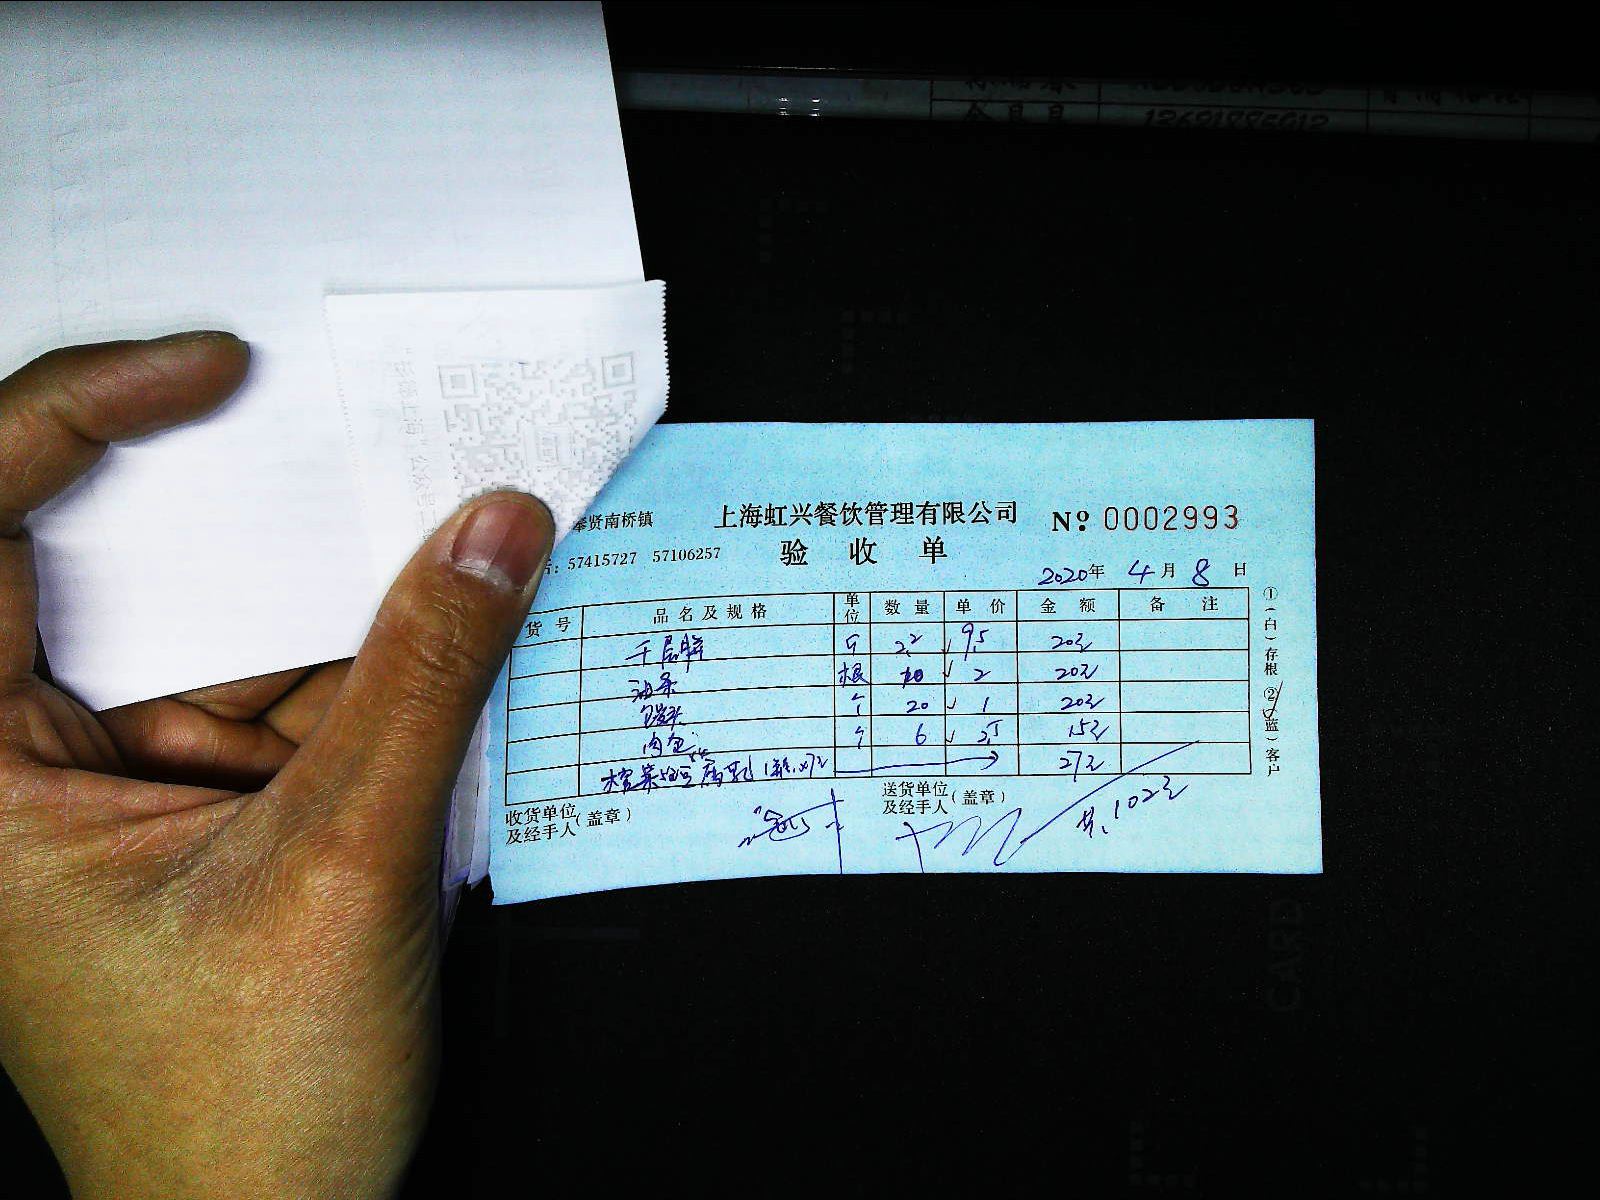 奉贤南桥镇 上海虹兴餐饮管理有限公司 No 0002993
话: 57415727 57106257 验 收 单
2020年 4月 8日
货号 品名及规格 单位 数量 单价 金额 备注
千层饼 斤 2.2 9.5 20元
油条 根 10 2 20元
馒头 个 20 1 20元
肉包 个 6 2.5 15元
榨菜 腐乳 27元
收货单位及经手人(盖章) 送货单位及经手人(盖章) 共.102元
①(白)存根 ②(蓝)客户